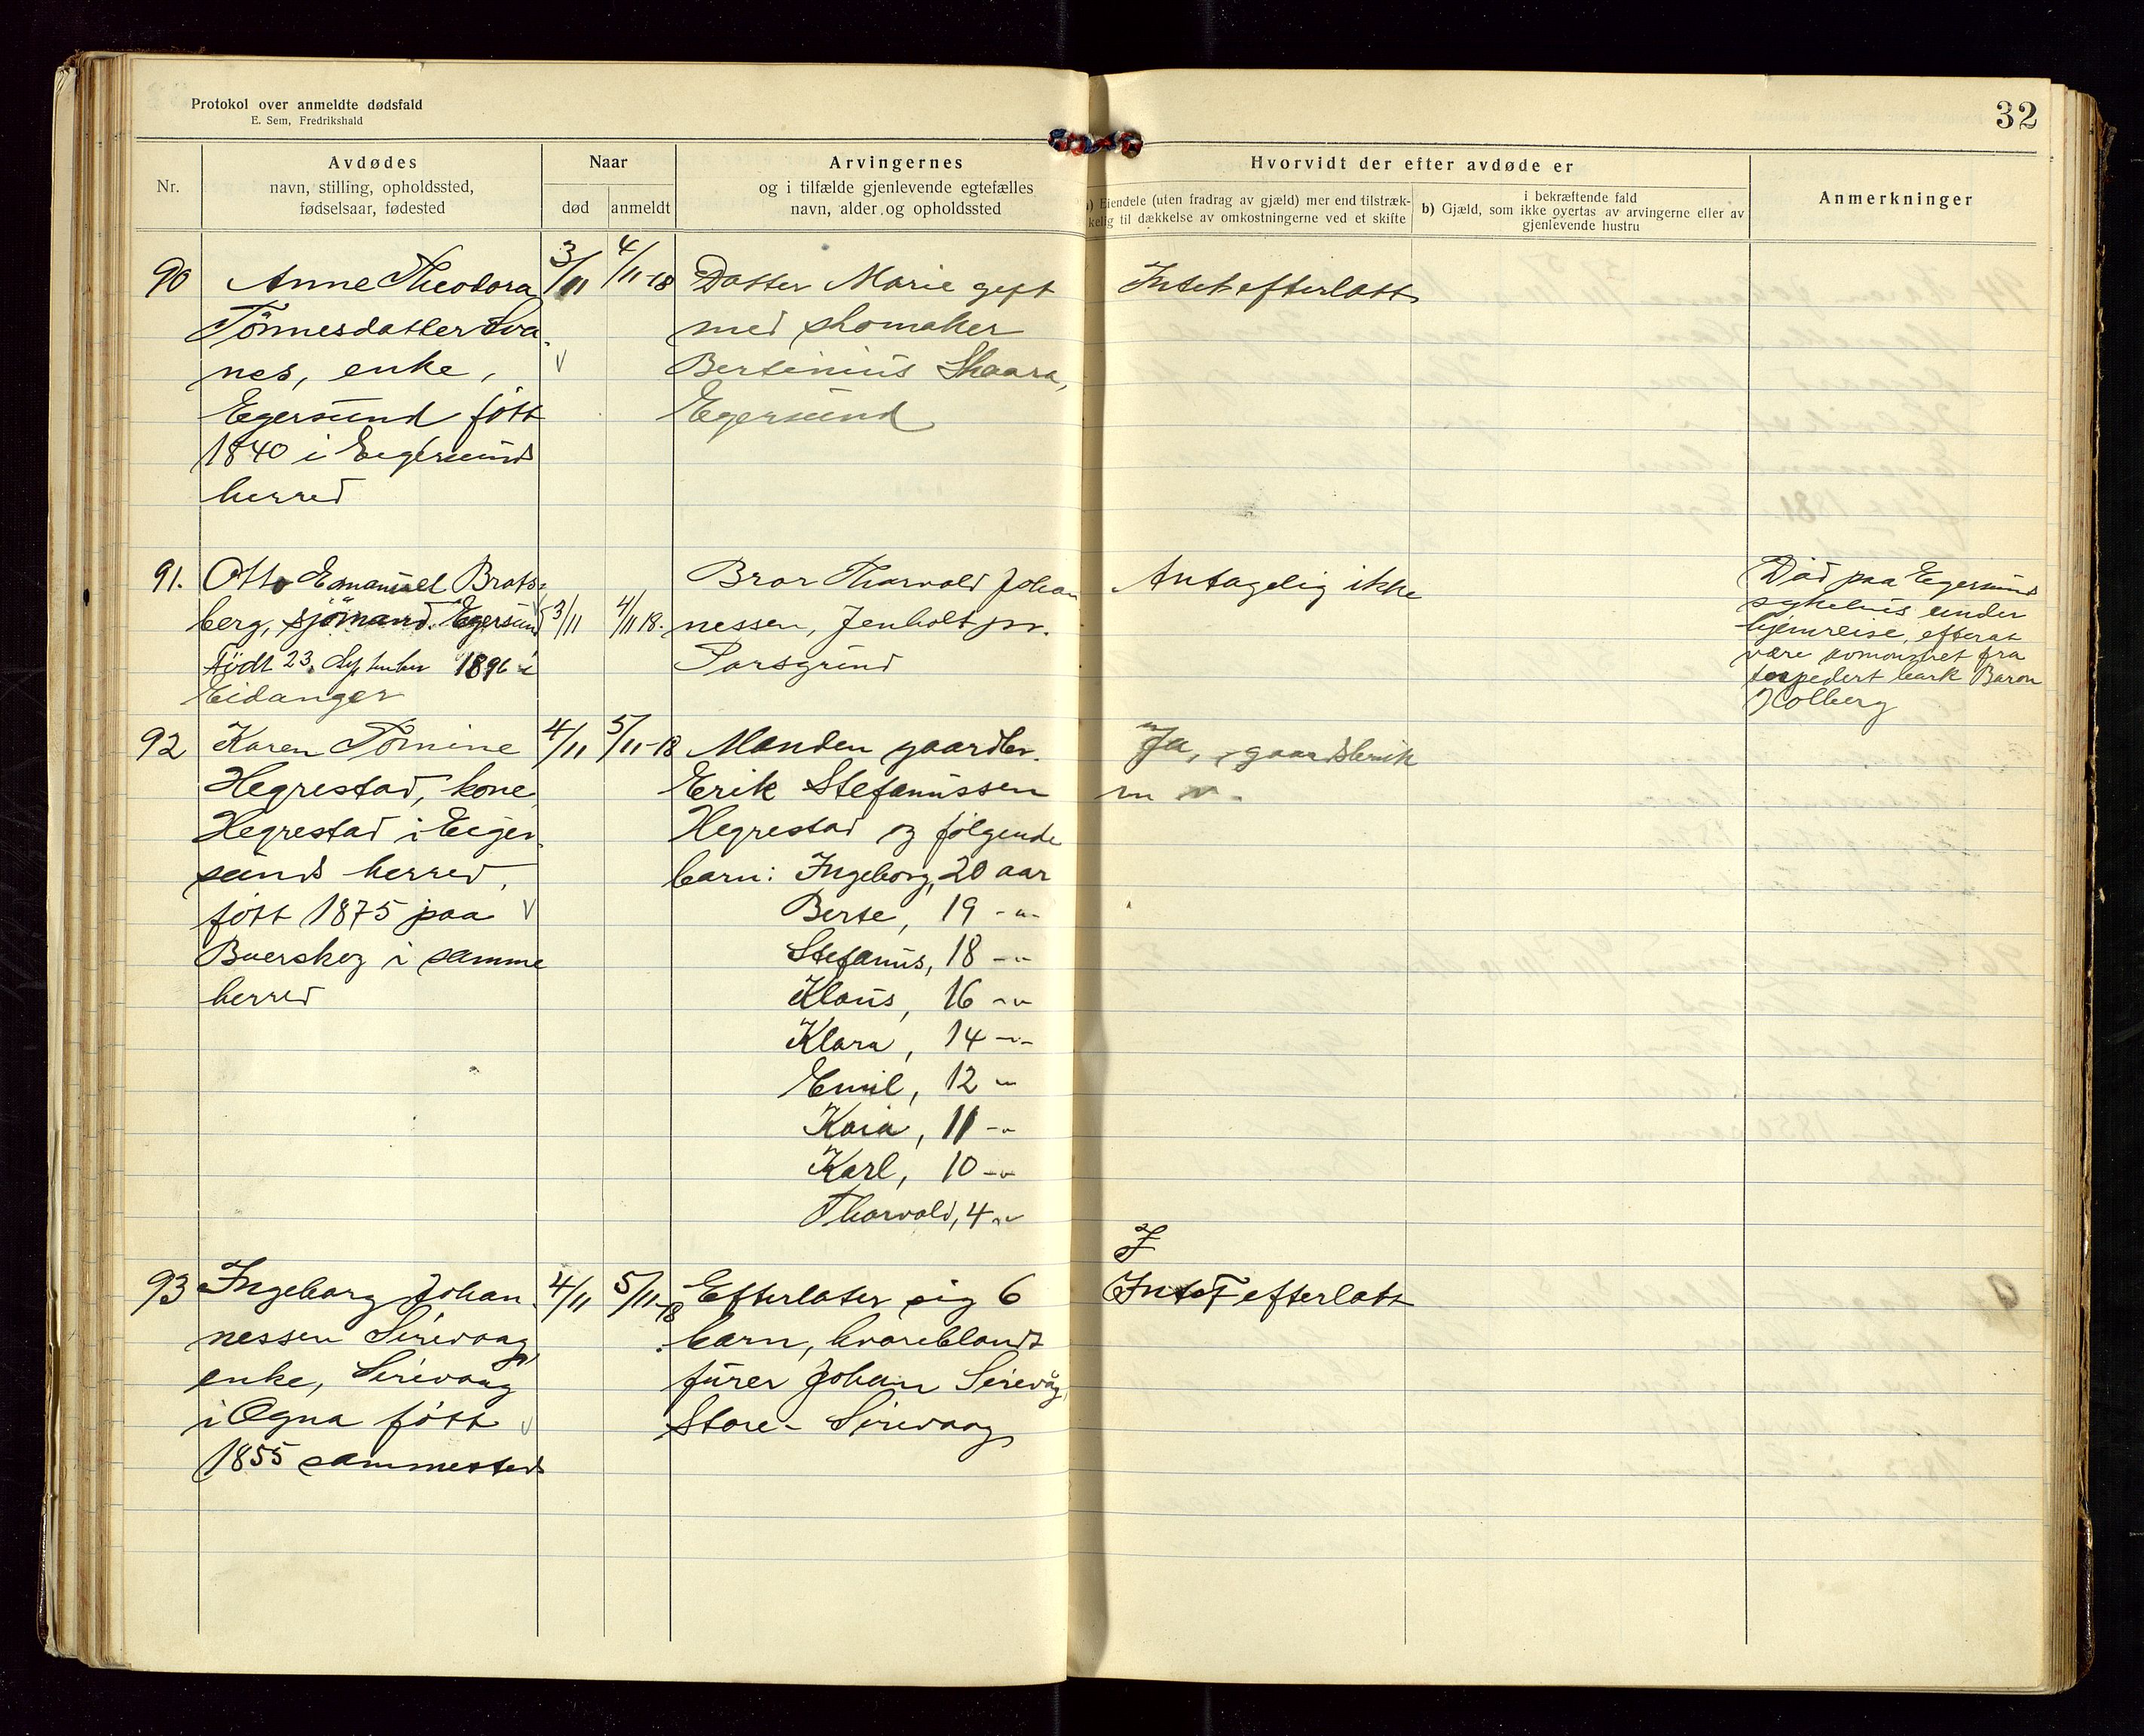 Protokol over anmeldte dødsfald
E. Sem, Fredrikshald
32
Nr.
Avdødes
navn, stilling, opholdssted,
fødselsaar, fødested
Naar
død
anmeldt
Arvingernes
og i tilfælde gjenlevende egtefælles
navn, alder og opholdssted
Hvorvidt der efter avdøde er
a) Eiendele (uten fradrag av gjæld) mer end tilstræk-
kelig til dækkelse av omkostningerne ved et skifte
b) Gjæld, som i bekræftende fald
ikke overtas av arvingerne eller av
gjenlevende hustru
Anmerkninger
90
Anne Theodora
Tönnesdatter Sva
nes, enke,
Egersund født
1840 i Eigersunds
herred
3/11
4/11-18
Datter Marie gift
med skomaker
Bertinius Skaara,
Egersund
Intet efterlatt
91.
Otto Emanuel Brats-
berg, sjömand. Egersund
Född 23. September 1896 i
Eidanger
3/11
4/11 18.
Bror Thorvald Johan
nessen, Jenholt pr.
Porsgrund
Antagelig ikke
Død paa Egersund
sykehus under
hjemreise, efterat
være
torpedert bark Baron
Holberg
92
Karen Tomine
Hegrestad, kone
Hegrestad i Eiger
sunds herred,
født 1875 paa
Buerskog i samme
herred
4/11
5/11-18
Manden gaardbr.
Erik Stefanussen
Hegrestad og følgende
barn: Ingeborg, 20 aar
Berte, 19 -"-
Stefanus, 18 -"-
Klaus, 16 -"-
Klara, 14 -"-
Emil, 12 -"-
Kaia, 11 -"-
Karl, 10 -"-
Thorvald, 4 -"-
Ja, gaardsbruk
m v.
93
Ingeborg Johan
nessen Sirevaag
enke, Sirevaag
i Ogna født
1855 sammesteds
4/11
5/11-18
Efterlater sig 6
barn, hvoriblandt
furer Johan Sirevåg,
Store-Sirevaag
I
Intet efterlatt